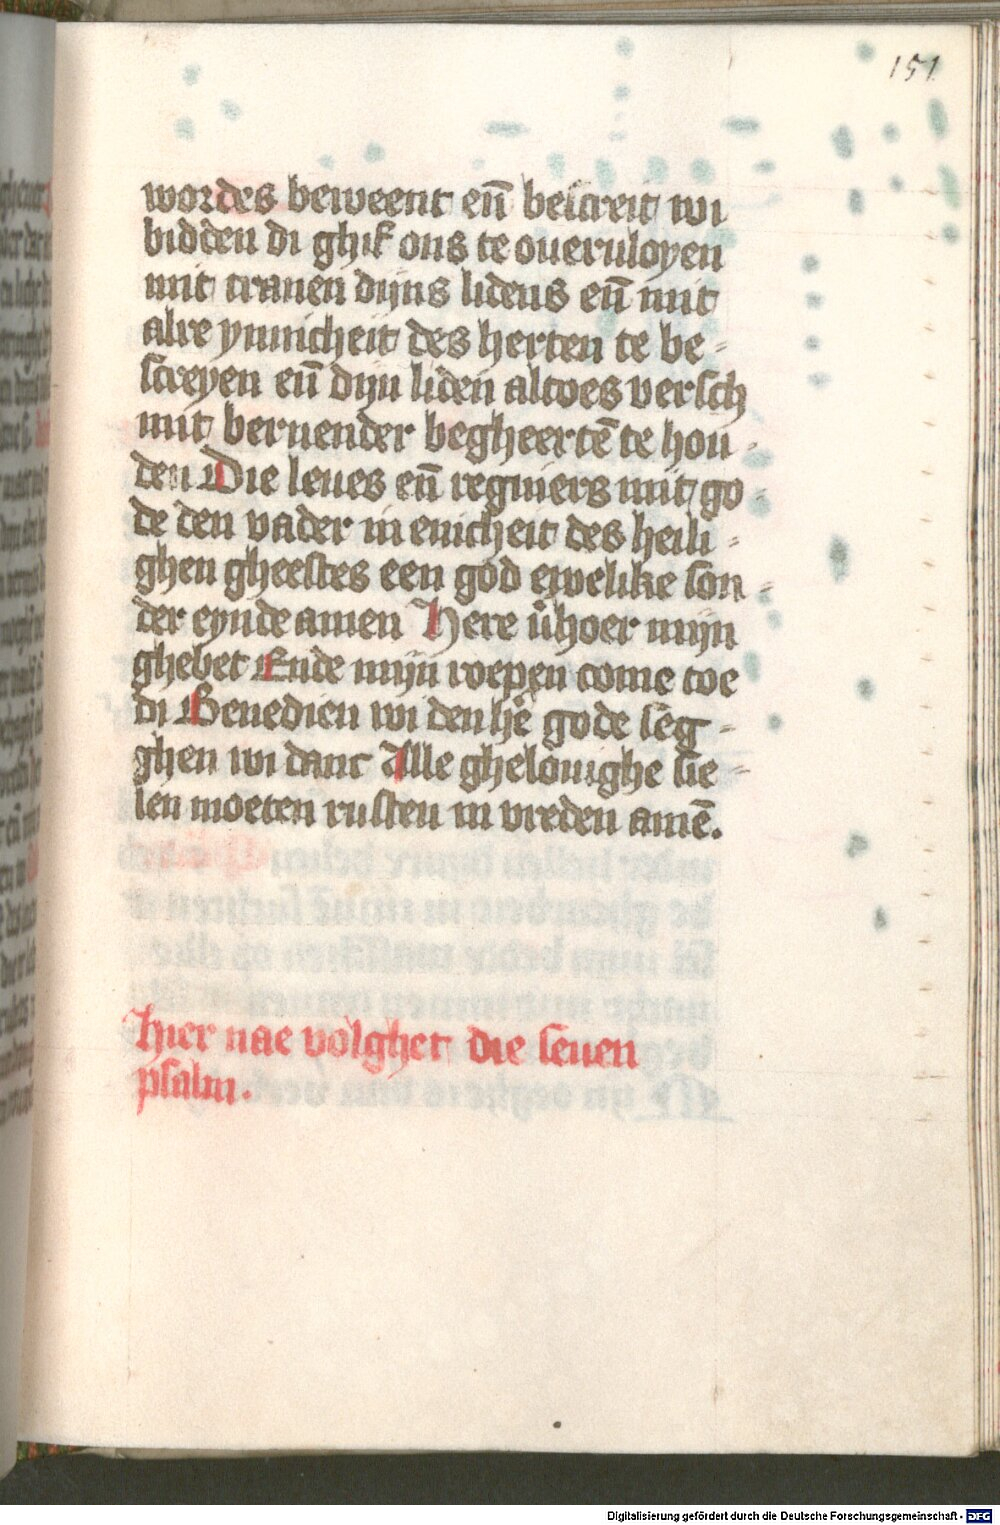 151
wordes beweent en̄ bescreit wi
bidden di ghif ons te oueruloyen
mit tranen dijns lidens en̄ mit
alre ynnicheit des herten te be-
screyen en̄ dijn liden altoes versch
mit beruender begheertē te hou-
den Die leues en̄ regniers mit go-
de den vader in enicheit des heili-
ghen gheestes een god ewelike son-
der eynde amen Here v̄hoer mijn
ghebet Ende mijn roepen come toe
di Benedien wi den hē gode seg-
ghen wi danc Alle ghelouighe sie-
len moeten rusten in vreden amē.
hier nae volghet die seuen
psalm.
Digitalisierung gefördert durch die Deutsche Forschungsgemeinschaft - DFG